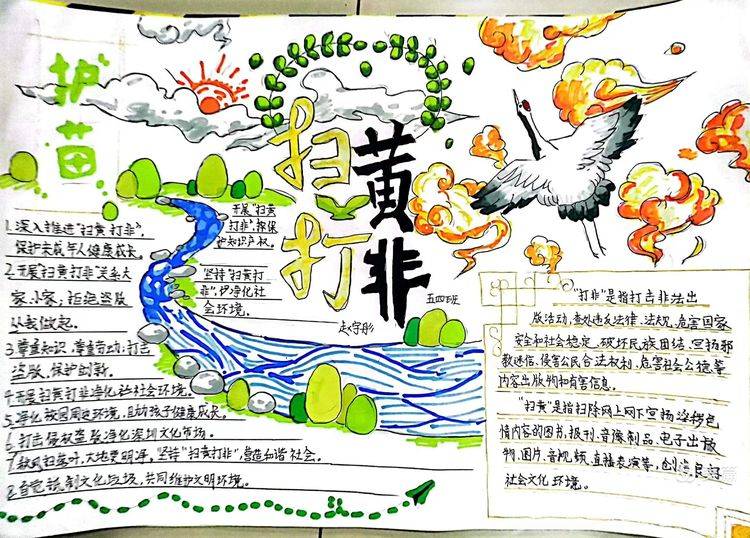 护苗
扫黄
打非
五四班
1.深入推进"扫黄打非",
保护未成年人健康成长。
2.开展"扫黄打非"关系大
家、小家,拒绝盗版
从我做起。
3.尊重知识,尊重劳动;打击
盗版,保护创新。
4.开展扫黄打非净化社会环境。
5.净化校园周边环境,互助孩子健康成长。
6.打击侵权盗版净化深圳文化市场。
7.秋风扫落叶,大地更明净,坚持"扫黄打非",营造和谐社会。
8.自觉抵制文化垃圾,共同维护文明环境。
开展"扫黄
打非",探保
护知识产权。
坚持"扫黄打
非",净化社
会环境。
"打非"是指打击非法出
版活动,查处违反法律、法规,危害国家
安全和社会稳定、破坏民族团结、宣扬邪
教迷信、侵害公民合法权利、危害社会公德等
内容出版物和有害信息。
"扫黄"是指扫除网上网下宣扬淫秽色
情内容的图书、报刊、音像制品、电子出版
物、图片、音视频、直播表演等,创造良好
社会文化环境。